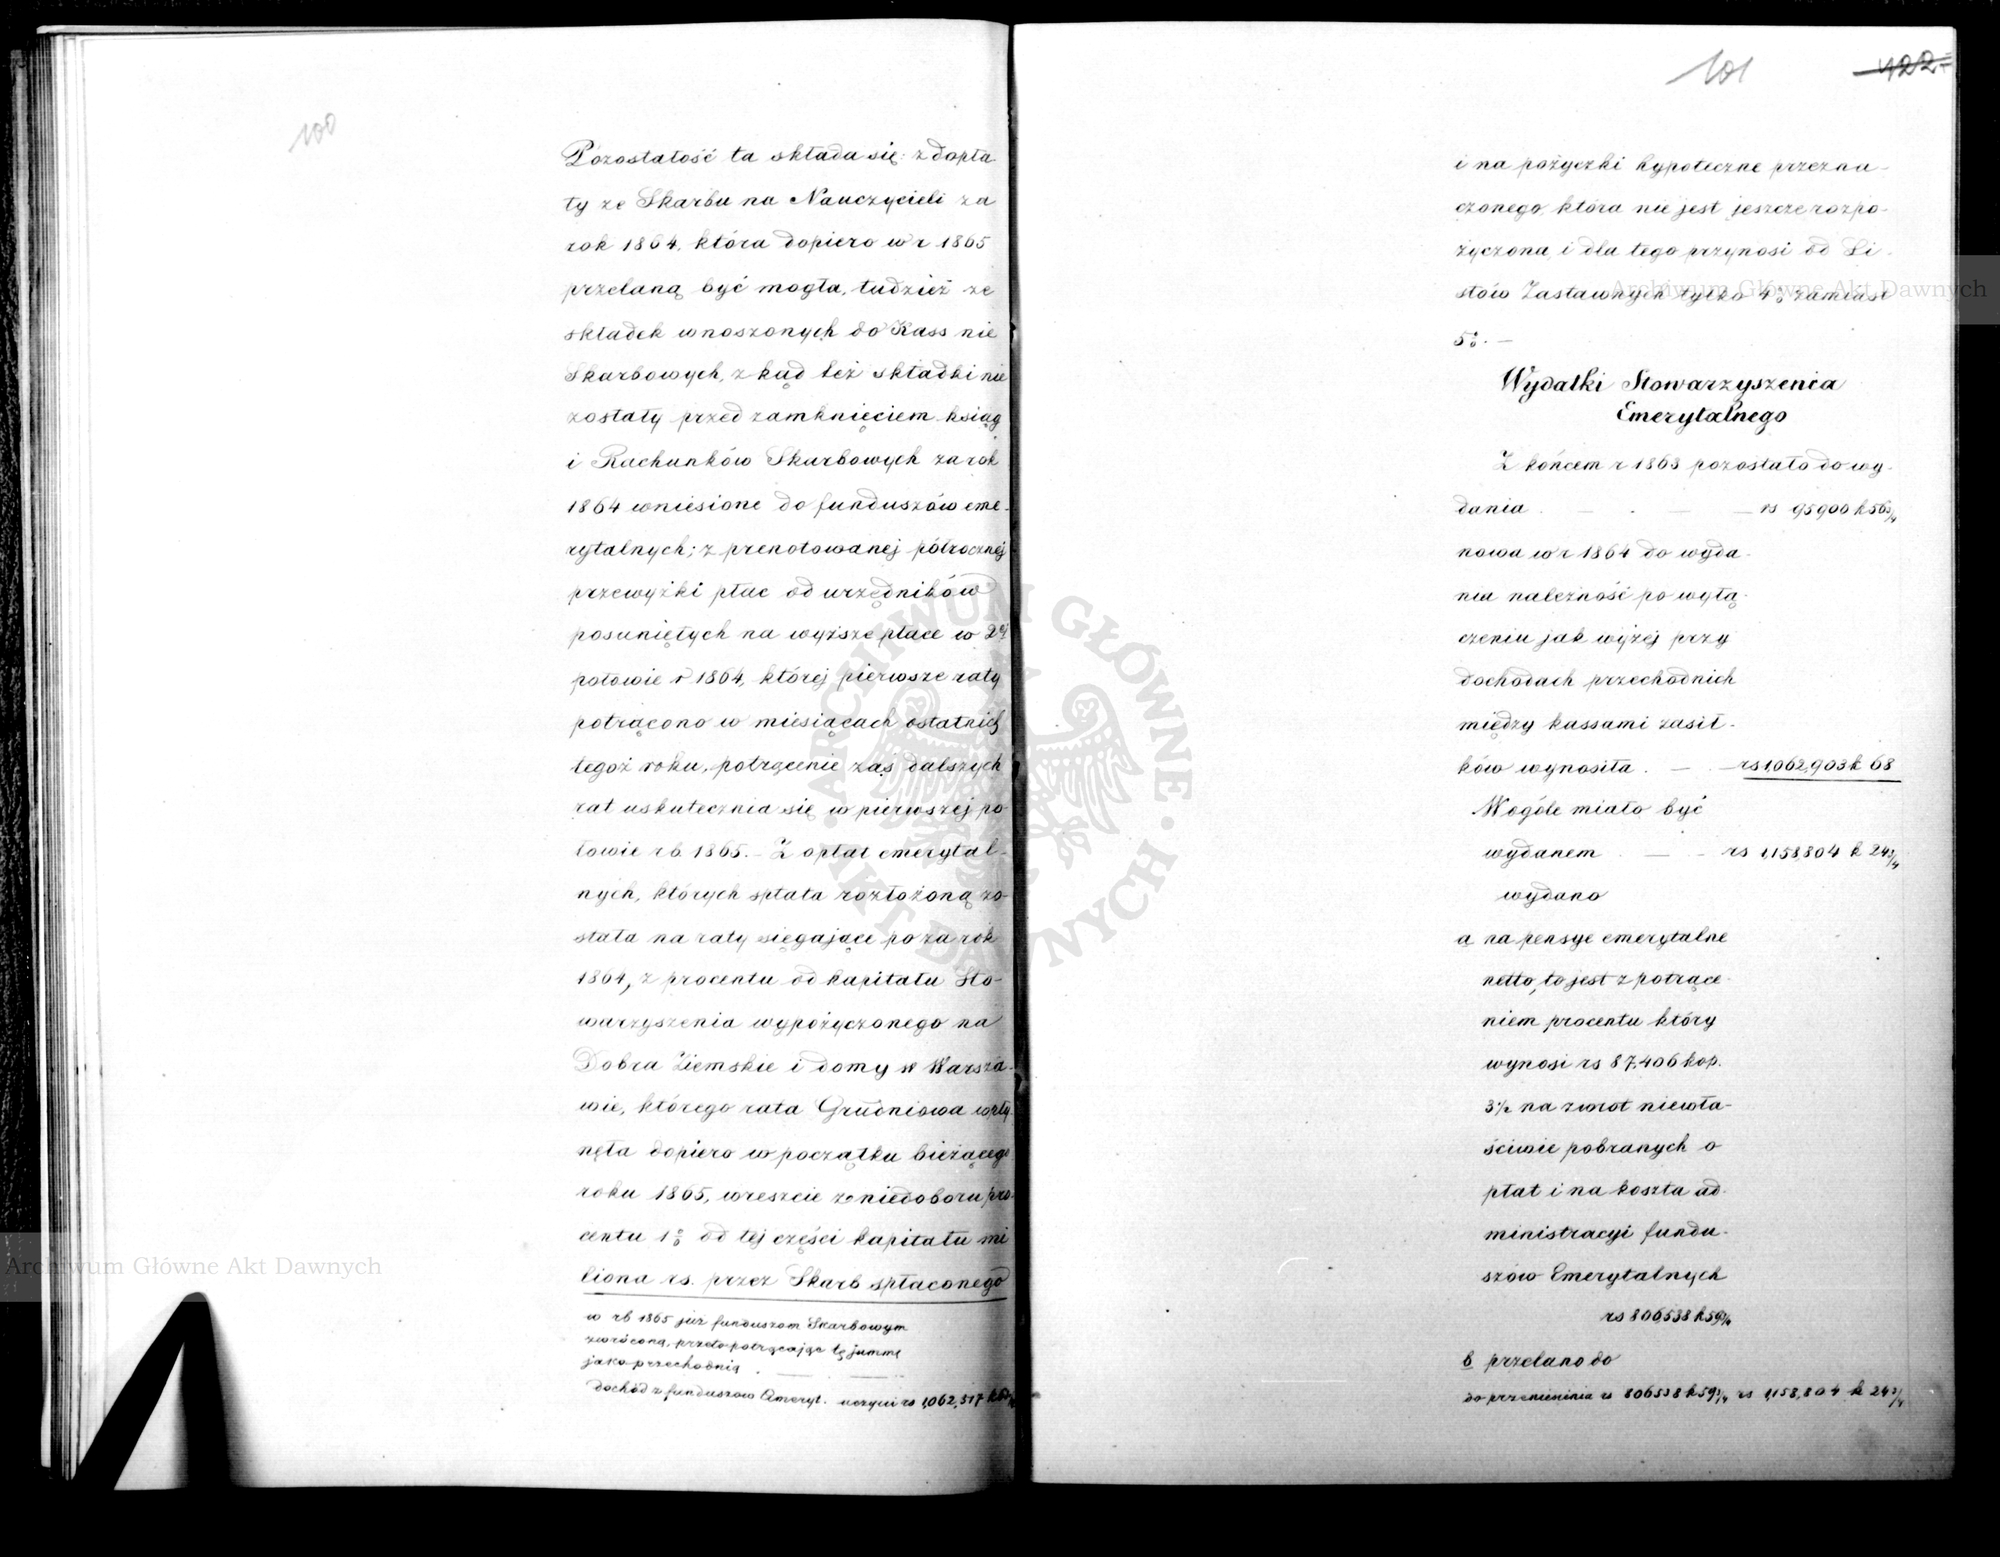 100
Pozostałość ta składa się: z dopła
ty ze Skarbu na Nauczycieli za
rok 1864, która dopiero w r 1865
przelaną być mogła, tudzież ze
składek wnoszonych do Kass nie
Skarbowych, z kąd też składki nie
zostały przed zamknięciem ksiąg
i Rachunków Skarbowych za rok
1864 wniesione do funduszów eme-
rytalnych; z prenotowanej półrocznej
przewyżki płac od urzędników
posuniętych na wyższe płace w 2ej
połowie r 1864, której pierwsze raty
potrącono w miesiącach ostatnich
tegoż roku, potrącenie zaś dalszych
rat uskutecznia się w pierwszej po
łowie r b 1865. – Z opłat emerytal-
nych, których spłata rozłożoną zo-
stała na raty sięgające po za rok
1864, z procentu od kapitału Sto-
warzyszenia wypożyczonego na
Dobra Ziemskie i domy w Warsza-
wie, którego rata Grudniowa wpły
nęła dopiero w początku bieżącego
roku 1865, wreszcie z niedoboru pro-
centu 1% od tej części kapitału mi
liona rs. przez Skarb spłaconego
w rb 1865 już funduszom Skarbowym
zwróconą, przeto potrącając tę summę
jako przechodnią
Dochód z funduszów Emeryt. uczyni rs 1,062,517
101
422
i na pożyczki hypoteczne przezna-
czonego, która nie jest jeszcze rozpo-
życzona, i dla tego przynosi od Li-
stów Zastawnych tylko 4% zamiast
5%. –
Wydatki Stowarzyszenia
Emerytalnego
Z końcem r 1863 pozostało do wy-
dania – . – – rs 95900 k 56 3/4
nowa w r 1864 do wyda-
nia należność po wyłą-
czeniu jak wyżej przy
dochodach przechodnich
między kassami zasił-
ków wynosiła . – – rs 1,062,903 k 68
Wogóle miało być
wydanem – – rs 1,158,804 k 24 3/4
wydano
a na pensye emerytalne
netto, to jest z potrące-
niem procentu który
wynosi rs 87,406 kop.
3½ na zwrot niewła-
ściwie pobranych o
płat i na koszta ad-
ministracyi fundu-
szów Emerytalnych
rs 806538 k 59 3/4
b przelano do
do przeniesienia rs 806538 k 59 3/4 rs 1,158,804 k 24 3/4
Archiwum Główne Akt Dawnych
Archiwum Główne Akt Dawnych
ARCHIWUM GŁÓWNE AKT DAWNYCH